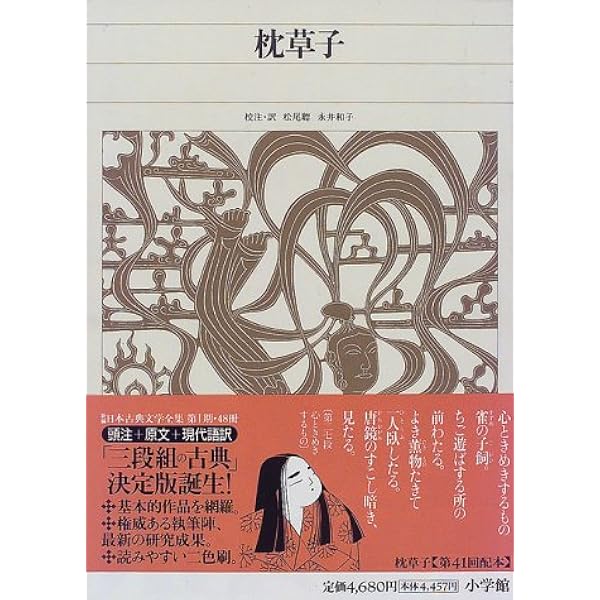 枕草子
校注・訳 松尾聰 永井和子
新編日本古典文学全集 第Ⅰ期・48冊
頭注+原文+現代語訳
「三段組の古典」
決定版誕生!
基本的作品を網羅。
権威ある執筆陣、
最新の研究成果。
読みやすい二色刷。
心ときめきするもの
雀の子飼。
ちご遊ばする所の
前わたる。
よき薫物たきて
一人臥したる。
唐鏡のすこし暗き、
見たる。
〔第二七段
心ときめき
するもの〕
枕草子【第41回配本】
定価4,680円 本体4,457円 小学館